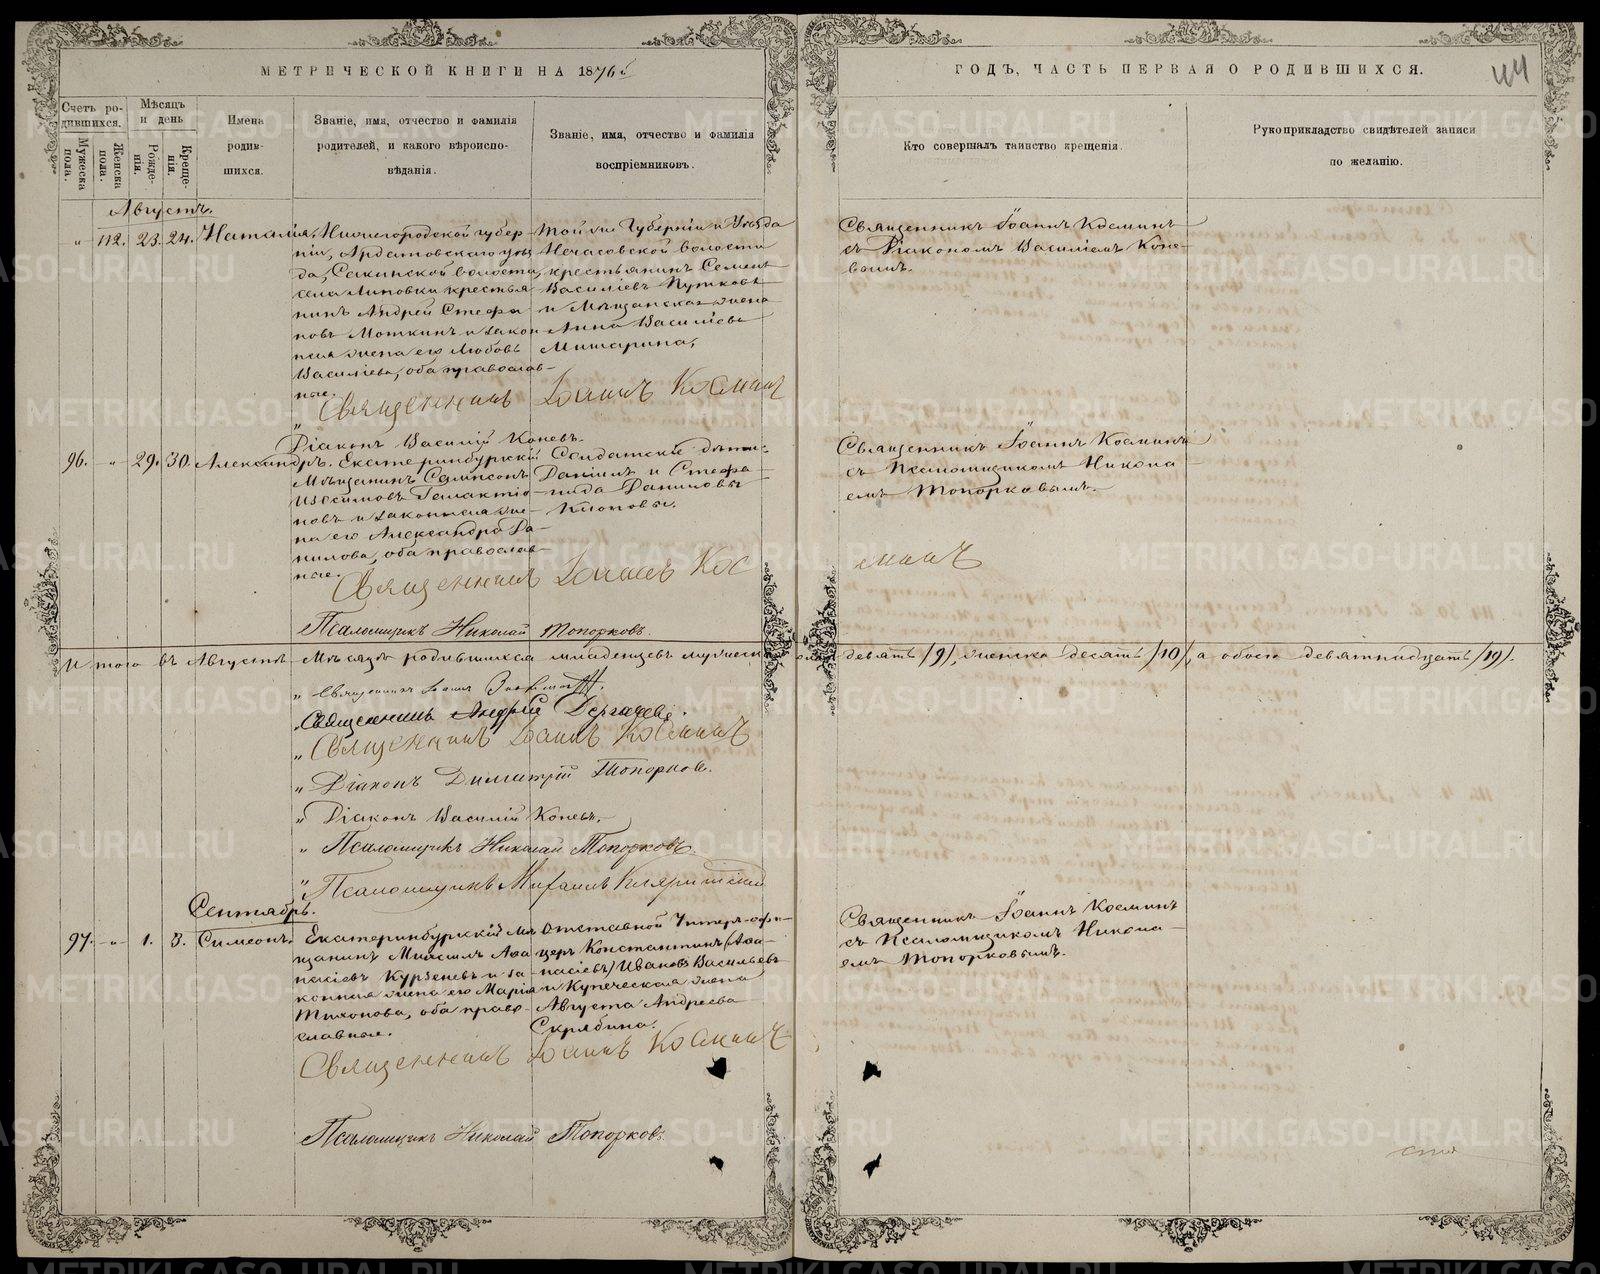 МЕТРИЧЕСКОЙ КНИГИ НА 1876й
ГОДЪ, ЧАСТЬ ПЕРВАЯ О РОДИВШИХСЯ.
44
Счетъ родившихся.
Мужеска пола.
Женска пола.
Мѣсяцъ и день
Рожденія.
Крещенія.
Имена родившихся.
Званіе, имя, отчество и фамилія
родителей, и какого вѣроиспо-
вѣданія.
Званіе, имя, отчество и фамилія
воспріемниковъ.
Кто совершалъ таинство крещенія.
Рукоприкладство свидѣтелей записи
по желанію.
Августъ.
" 112. 23. 24. Наталія.
Нижегородской губер-
ніи, Ардатовскаго уѣз
да, Сакинской волости,
села Липовки крестья
нинъ Андрей Стефа
новъ Моткинъ и закон
ная жена его Любовь
Василіева, оба православ-
ные.
Той же Губерніи и Уѣзда
волости
крестьянинъ Семенъ
Василіевъ
и Мѣщанская жена
Анна Василіева
Мишарина,
Священникъ Іоаннъ Косминъ
съ Діакономъ Василіемъ Коне-
вымъ.
Священникъ Іоаннъ Косминъ
Діаконъ Василій Коневъ.
96. " 29. 30. Александръ.
Екатеринбургскій
Мѣщанинъ Сампсонъ
Галактіо
новъ и законная же-
на его Александра Да-
нилова, оба православ-
ные.
Солдатскіе дѣти:
Даніилъ и Стефа-
нида Даниловы
Священникъ Іоаннъ Косминъ
съ Псаломщикомъ Никола-
емъ Топорковымъ.
Священникъ Іоаннъ Кос
минъ
Псаломщикъ Николай Топорковъ.
Итого въ Августѣ Мѣсяцѣ родившихся младенцевъ мужеска пола девять /9/, женска десять /10/, а обоего девятнадцать /19/.
" Священникъ Іоаннъ
" Священникъ Андрей Дергачевъ.
" Священникъ Іоаннъ Косминъ
" Діаконъ Димитрій Топорковъ.
" Діаконъ Василій Коневъ.
" Псаломщикъ Николай Топорковъ.
" Псаломщикъ Михаилъ
Сентябрь.
97. " 1. 3. Симеонъ.
Екатеринбургскій Мѣ
щанинъ Михаилъ Афа
насіевъ и за-
конная жена его Марія
Тихонова, оба право-
славные.
Отставной Унтеръ-офи-
церъ Константинъ (Афа-
насіевъ) Ивановъ Васильевъ
и Купеческая жена
Августа Андреева
Скрябина.
Священникъ Іоаннъ Косминъ
съ Псаломщикомъ Никола-
емъ Топорковымъ.
Священникъ Іоаннъ Косминъ
Псаломщикъ Николай Топорковъ.
METRIKI.GASO-URAL.RU